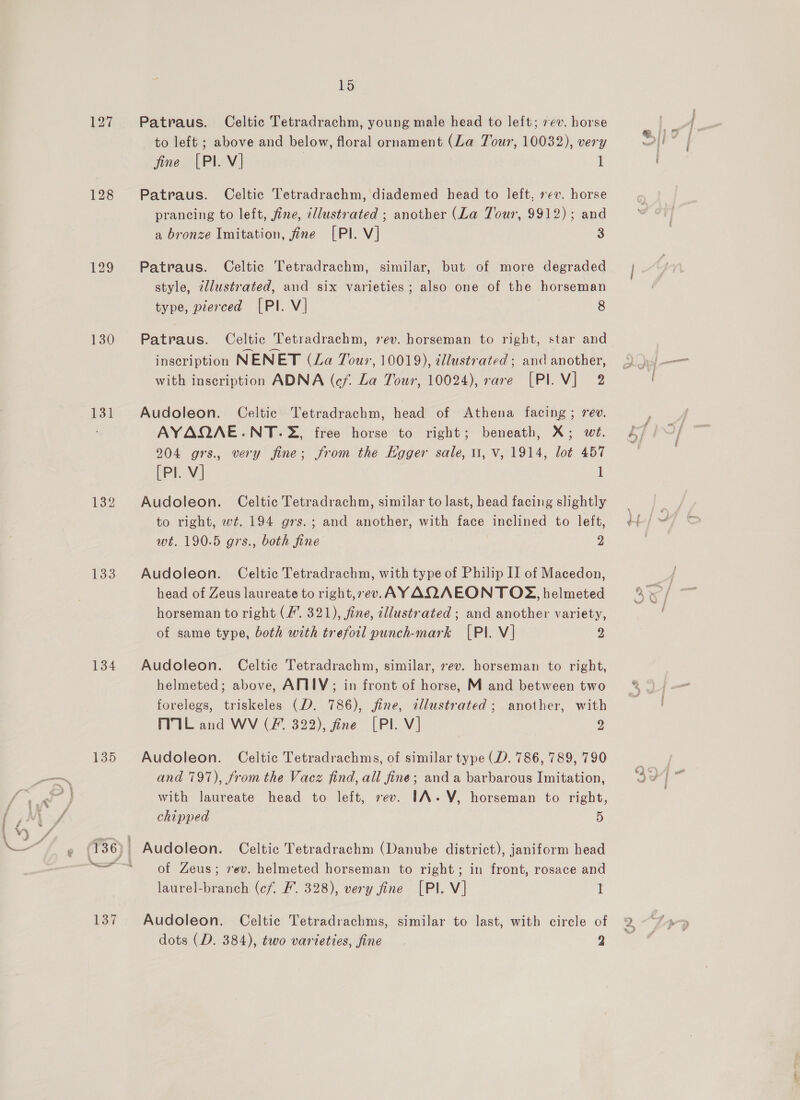 15
127 Patraus. Celtic Tetradrachm, young male head to left; rev. horse
to left; above and below, floral ornament (La Tour, 10032), very
fine [Pl. V] 1
128 Patraus. Celtic Tetradrachm, diademed head to left, rev. horse
prancing to left, fine, illustrated; another (La Tour, 9912); and
a bronze Imitation, fine [Pl. V] 3
129 Patraus. Celtic Tetradrachm, similar, but of more degraded
style, illustrated, and six varieties; also one of the horseman
type, pierced [Pl. V] 8
130 Patraus. Celtic Tetradrachm, rev. horseman to right, star and
inscription NENET (La Tour, 10019), illustrated; and another,
with inscription ADNA (cf. La Tour, 10024), rare [Pl. V] 2
131 Audoleon. Celtic Tetradrachm, head of Athena facing; rev.
ΑΥΔΩΛΕ.ΝΤ.Σ, free horse to right; beneath, X; wt.
204 grs., very fine; from the Egger sale, 11, v, 1914, lot 457
[Pl. V] 1
132 Audoleon. Celtic Tetradrachm, similar to last, head facing slightly
to right, wt. 194 grs.; and another, with face inclined to left,
wt. 190.5 grs., both fine 2
133 Audoleon. Celtic Tetradrachm, with type of Philip II of Macedon,
head of Zeus laureate to right, rev. ΑΥΔΩΛΕΟΝΤΟΣ, helmeted
horseman to right (F. 321), fine, illustrated; and another variety,
of same type, both with trefoil punch-mark [Pl. V] 2
134 Audoleon. Celtic Tetradrachm, similar, rev. horseman to right,
helmeted; above, in front of horse, M and between two
forelegs, triskeles (D. 786), fine, illustrated; another, with
and WV (F. 322), fine [Pl. V] 2
135 Audoleon. Celtic Tetradrachms, of similar type (D. 786, 789, 790
and 797), from the Vacz find, all fine; and a barbarous Imitation,
with laureate head to left, rev. IA.V, horseman to right,
chipped 5
136 Audoleon. Celtic Tetradrachm (Danube district), janiform head
of Zeus; rev. helmeted horseman to right; in front, rosace and
laurel-branch (cf. F. 328), very fine [Pl. V] 1
137 Audoleon. Celtic Tetradrachms, similar to last, with circle of
dots (D. 384), two varieties, fine 2